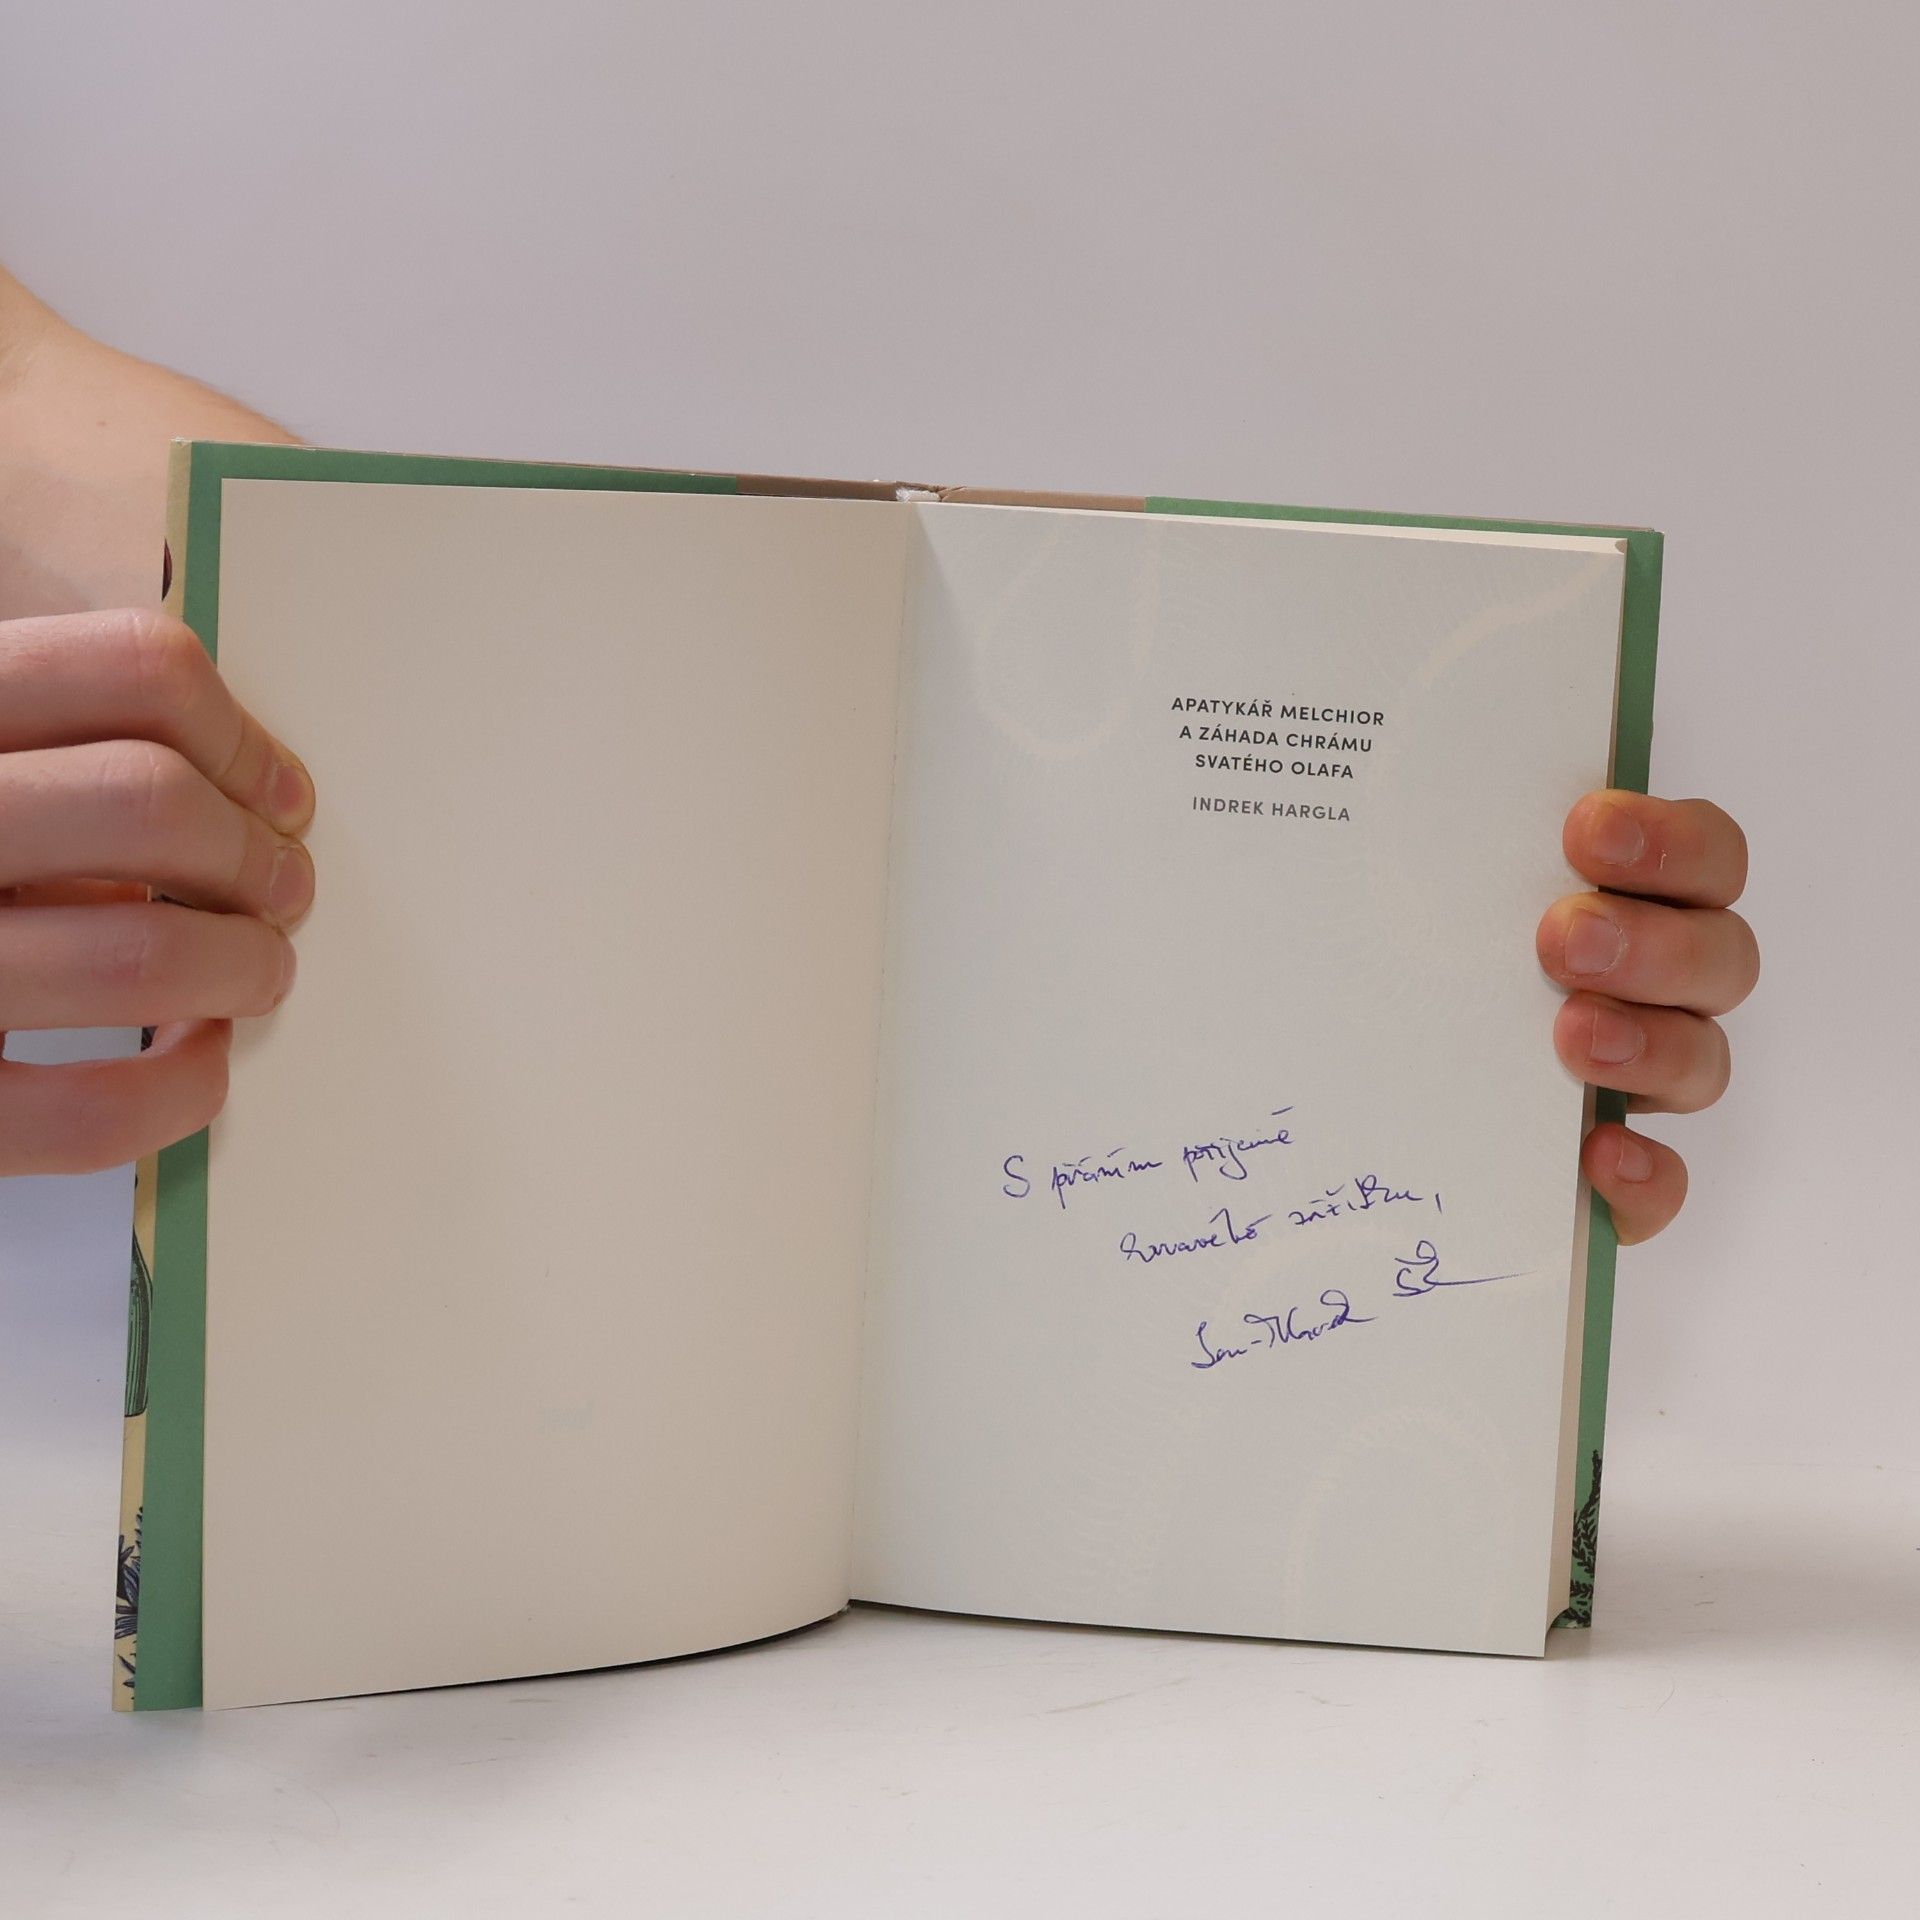 APATYKÁŘ MELCHIOR
A ZÁHADA CHRÁMU
SVATÉHO OLAFA
INDREK HARGLA
S přáním příjemně
krvavého zážitku,
Jan-Marek Šík